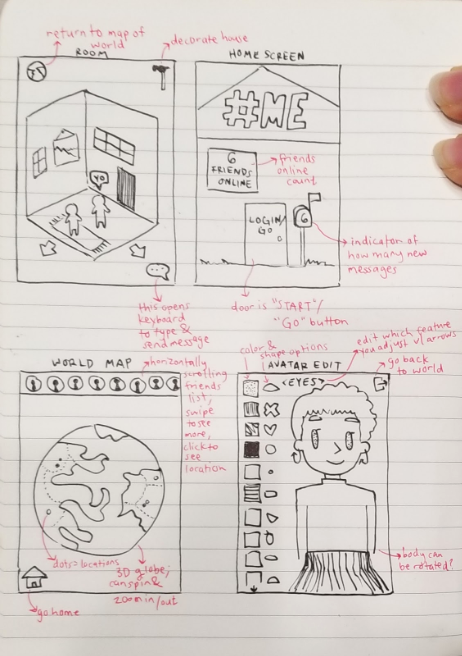 return to map of
world
decorate house
ROOM
YO
this opens
keyboard
to type &
send message
HOME SCREEN
#ME
6
FRIENDS
ONLINE
friends
online
count
LOGIN/
GO
6
indicator of
how many new
messages
door is "START"/
"GO" button
WORLD MAP
horizontally
scrolling
friends
list,
swipe
to see
more,
click to
see
location
dots > locations
3D globe;
can spin &
zoom in/out
go home
color &
shape options
edit which feature
you adjust w/ arrows
AVATAR EDIT
<EYES>
go back
to world
body can
be rotated!